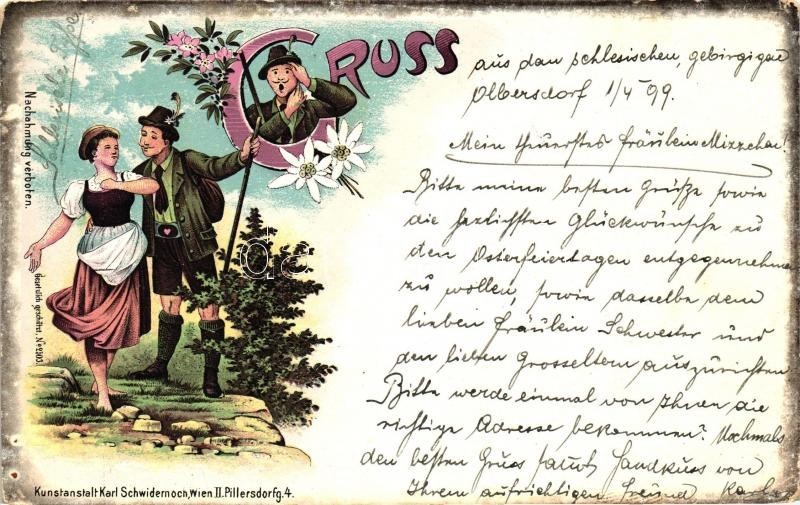 GRUSS
aus dem schlesischen, gebirgigen
Olbersdorf 1/4 99.
Mein theuerstes Fräulein Mizzchen!
Bitte meine besten Grüße sowie
die herzlichsten Glückwünsche zu
den Osterfeiertagen entgegennehmen
zu wollen, sowie dasselbe dem
lieben Fräulein Schwester und
den lieben Grosseltern auszurichten
Bitte werde einmal von Ihnen die
richtige Adresse bekommen? Nochmals
den besten Gruss sammt Handkuss von
Ihrem aufrichtigen Freund Karl
Nachahmung verboten.
Gesetzlich geschützt, No 2910.
Kunstanstalt Karl Schwidernoch, Wien II. Pillersdorfg. 4.